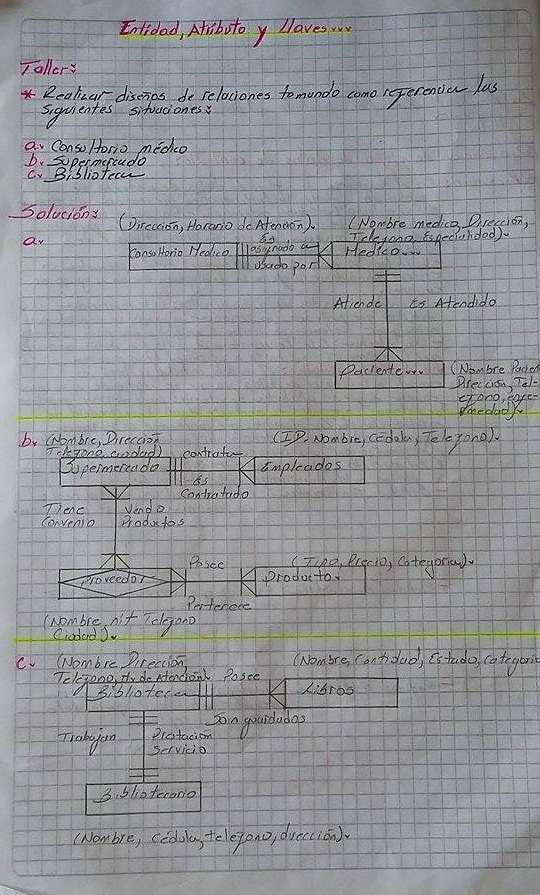 Entidad, Atributo y Llaves...
Taller:
* Realizar diseños de relaciones tomando como referencia las
siguientes situaciones:
a. Consultorio médico
b. Supermercado
c. Biblioteca
Solución:
a.
(Dirección, Horario de Atención).
(Nombre medico, Dirección,
Telefono, Especialidad).
Consultorio Medico
Es
asignado a
Usado por
Medico...
Atiende
Es Atendido
Paciente...
(Nombre Pacien
Dirección, Tel-
efono, enfer-
medad).
b. (Nombre, Dirección
Telefono, ciudad)
(ID. Nombre, Cédula, Telefono).
Supermercado
contrata
Es
Contratado
Empleados
Tiene
Convenio
Vende
Productos
(Tipo, Precio, Categoria).
Proveedor
Posee
Pertenece
Producto.
(Nombre nit Telefono
Ciudad).
c. (Nombre, Dirección,
Telefono, Hr de Atención).
(Nombre, Cantidad, Estado, Categoria
Biblioteca
Posee
Son guardados
Libros
Trabajan
Prestación
Servicio
Bibliotecario
(Nombre, Cédula, telefono, dirección).